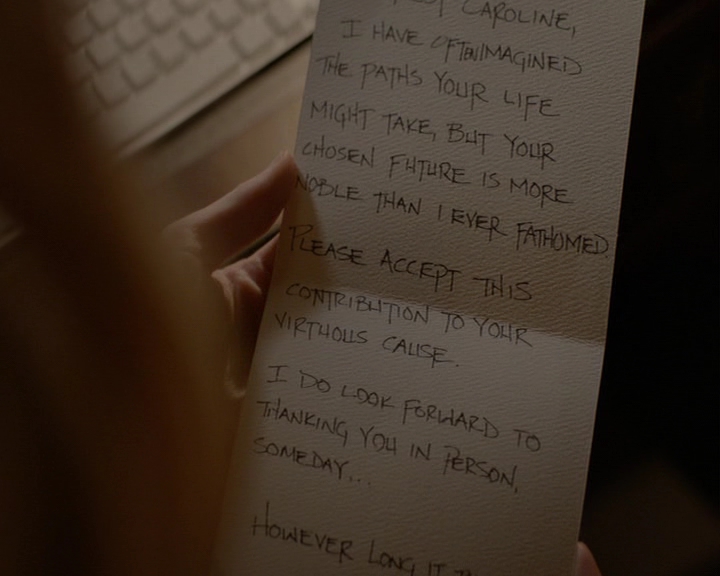 CAROLINE,
I HAVE OFTEN IMAGINED
THE PATHS YOUR LIFE
MIGHT TAKE, BUT YOUR
CHOSEN FUTURE IS MORE
NOBLE THAN I EVER FATHOMED.
PLEASE ACCEPT THIS
CONTRIBUTION TO YOUR
VIRTUOUS CAUSE.
I DO LOOK FORWARD TO
THANKING YOU IN PERSON,
SOMEDAY...
HOWEVER LONG IT